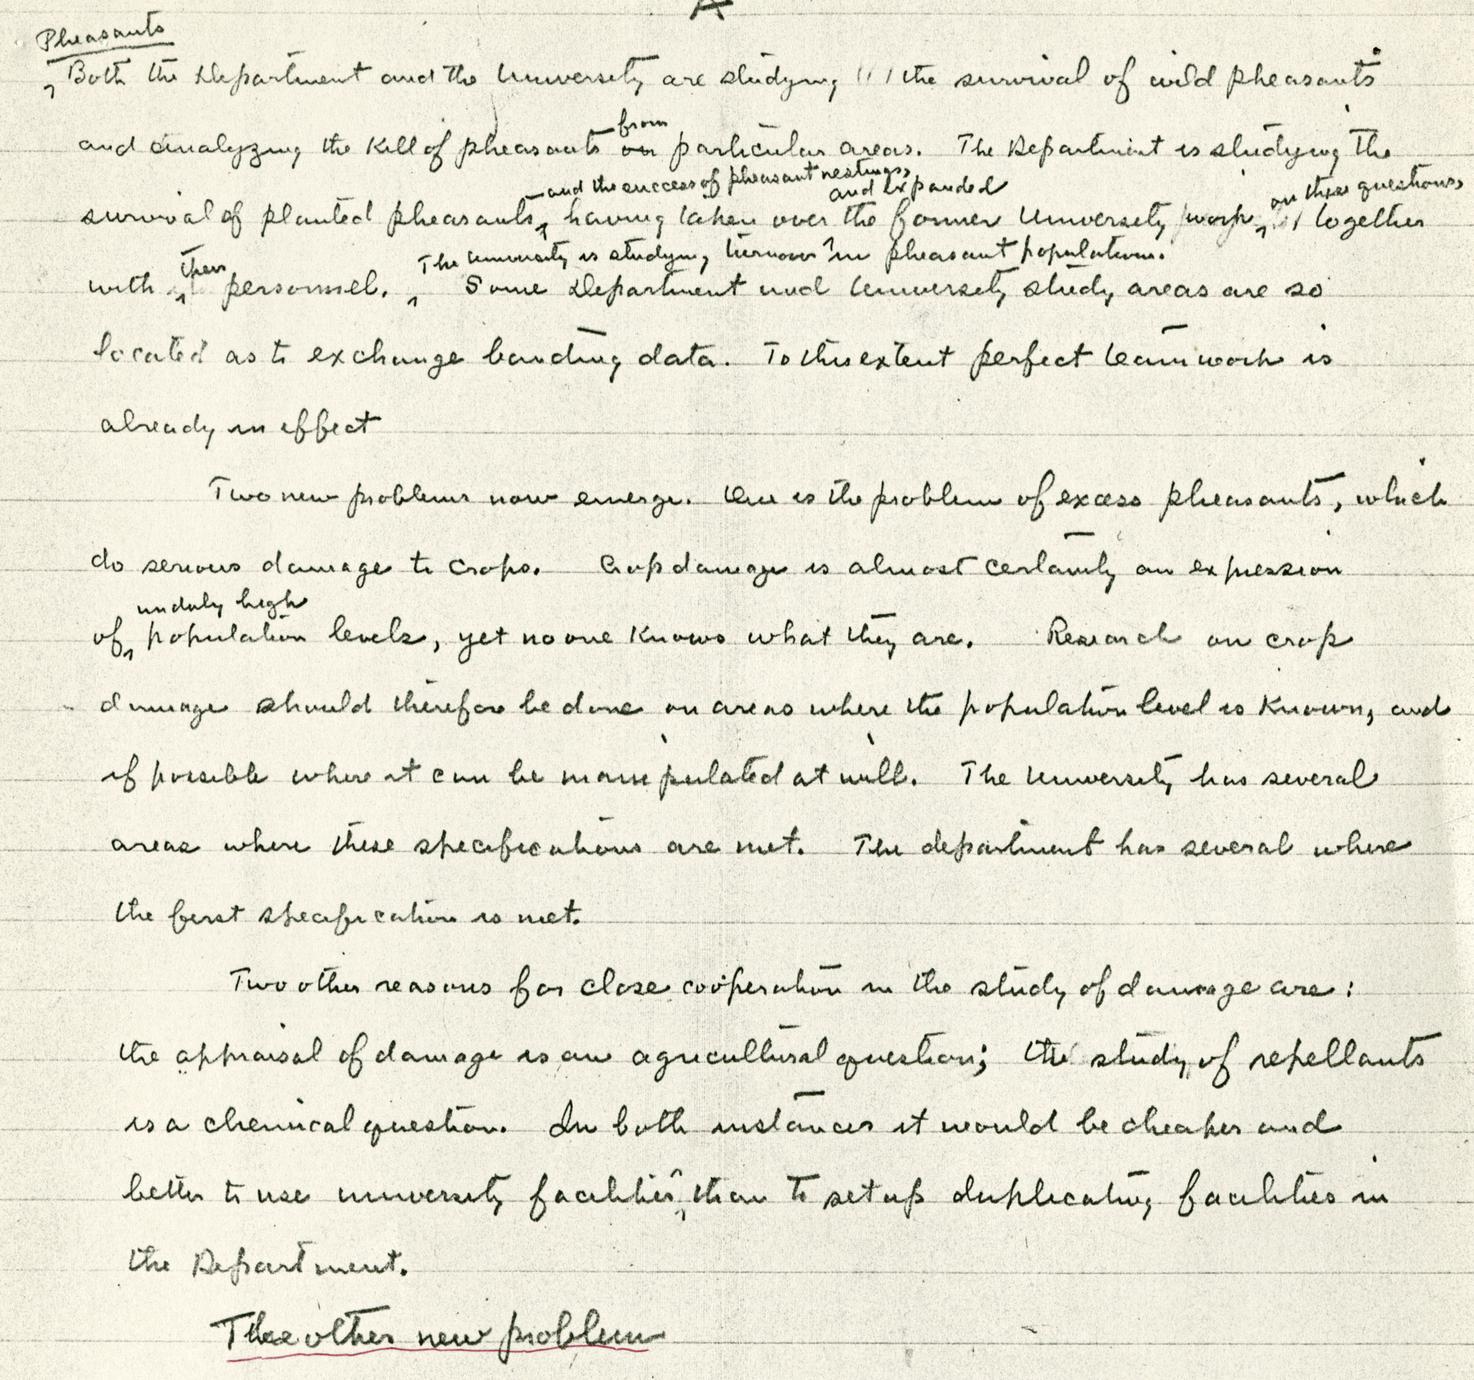 A
Pheasants
Both the Department and the University are studying the survival of wild pheasants
and analyzing the kill of pheasants from
on particular areas. The Department is studying the
and the success of pheasant nestings,
and expanded
on these questions,
survival of planted pheasants, having taken over the former University work, together
their
The University is studying turnover in pheasant populations.
with personnel. Some Department and University study areas are so
located as to exchange banding data. To this extent perfect teamwork is
already in effect
Two new problems now emerge. One is the problem of excess pheasants, which
do serious damage to crops. Crop damage is almost certainly an expression
unduly high
of population levels, yet no one knows what they are. Research on crop
damage should therefore be done on areas where the population level is known, and
if possible where it can be manipulated at will. The University has several
areas where these specifications are met. The department has several where
the first specification is met.
Two other reasons for close coöperation in the study of damage are:
the appraisal of damage is an agricultural question; the study of repellants
is a chemical question. In both instances it would be cheaper and
better to use university facilities than to set up duplicating facilities in
the Department.
The other new problem